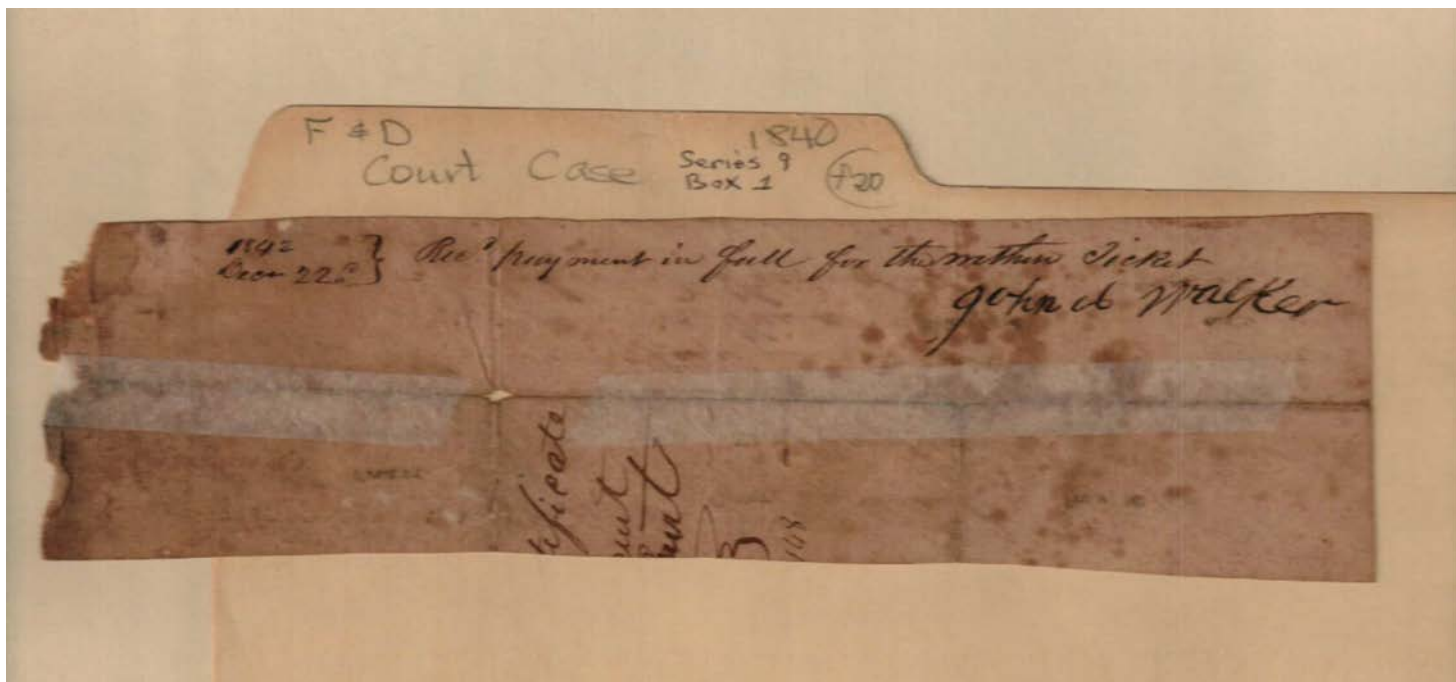 F & D 1840
Court Case Series 9
Box 1 20
1842
Decr 22d } Recd payment in full for the within Ticket
John A Walker
ificate
B
148